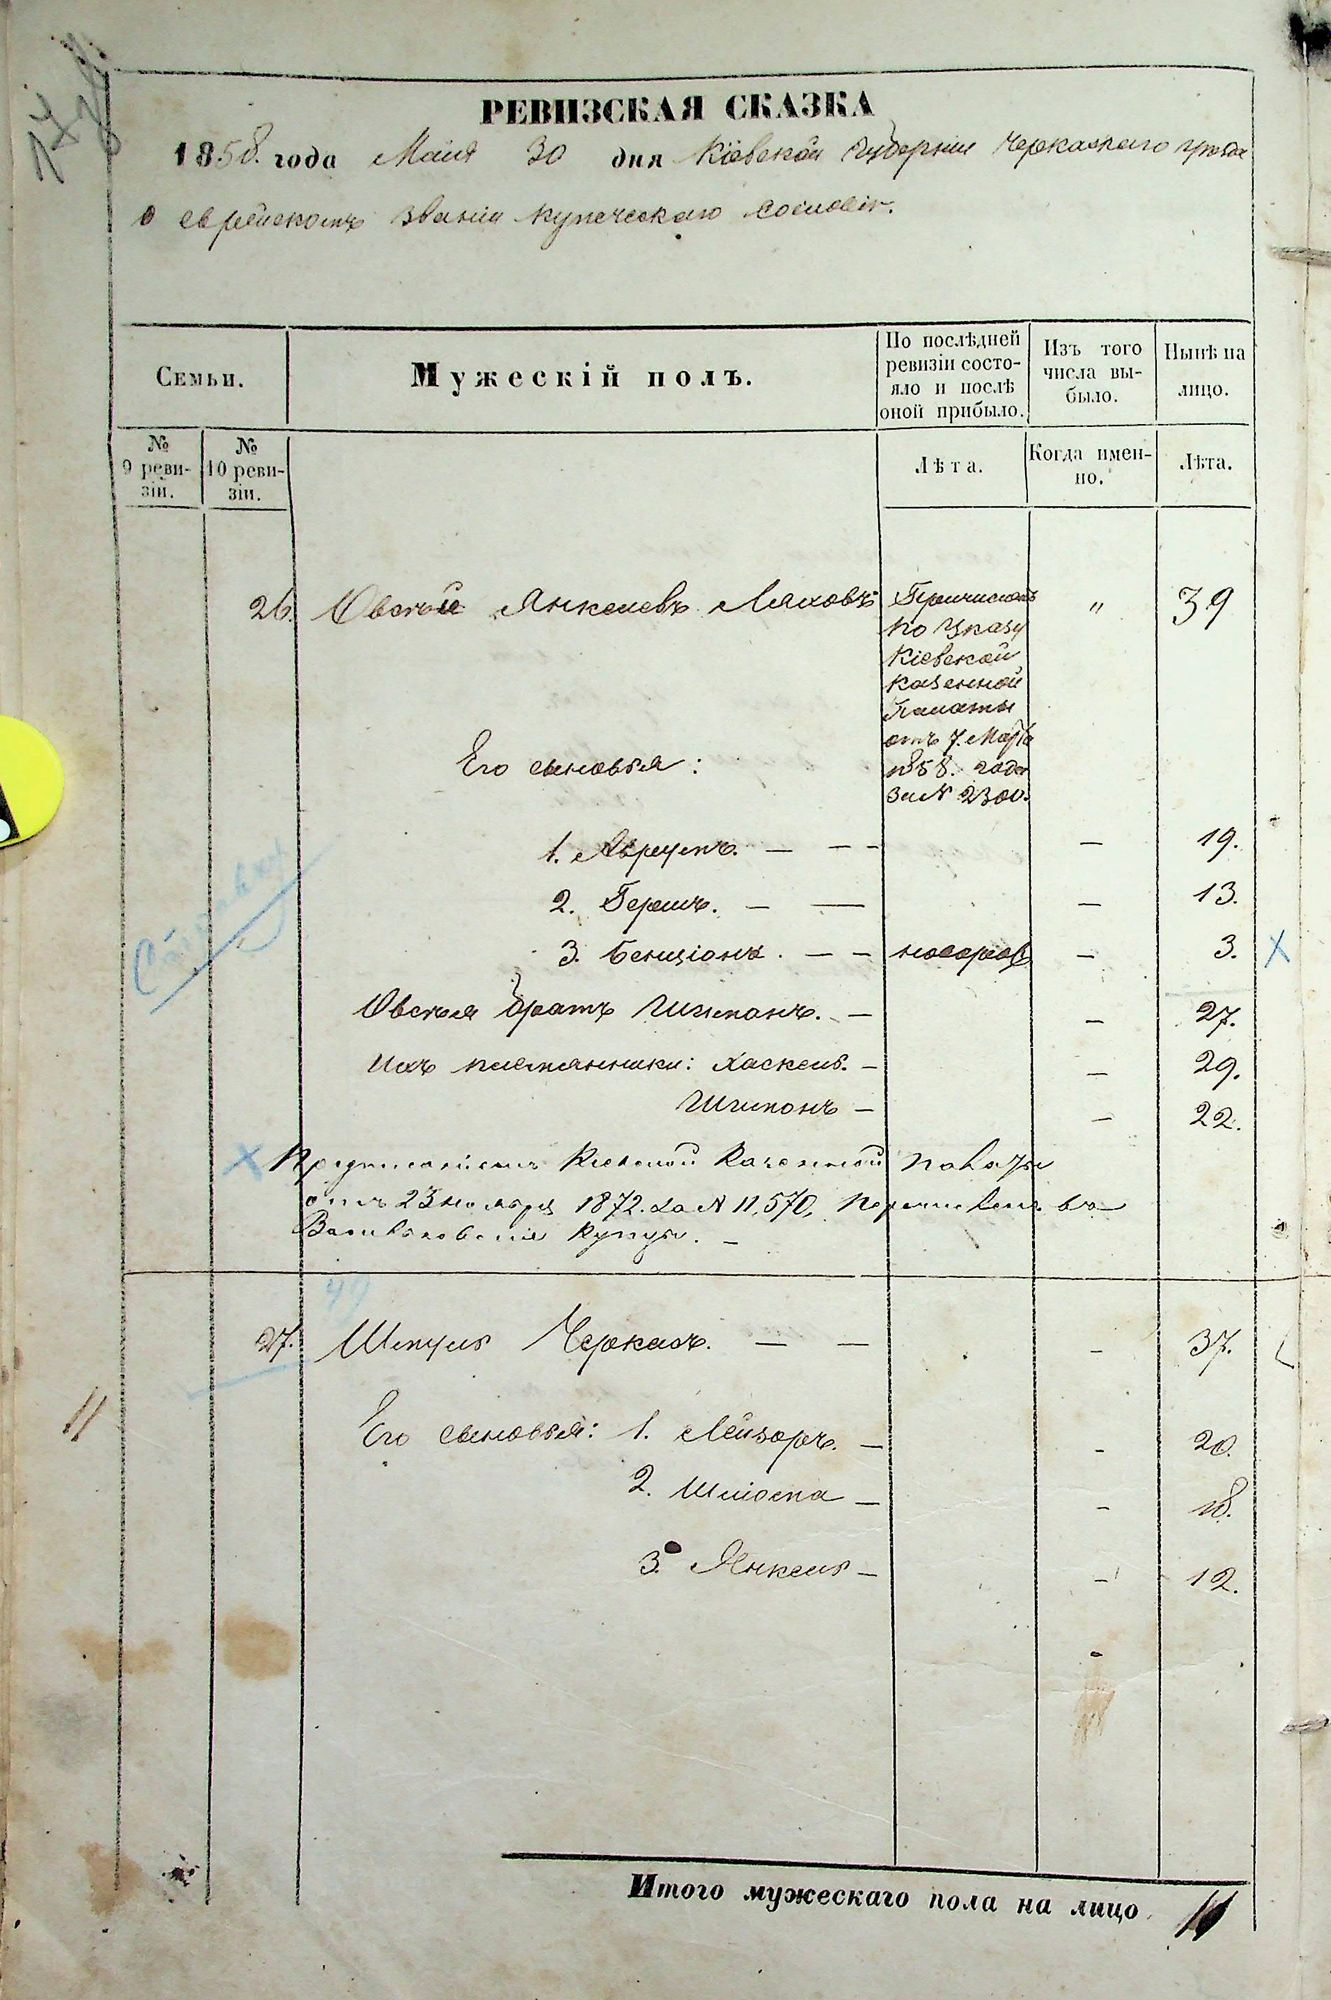 РЕВИЗСКАЯ СКАЗКА
1858. года Мая 30 дня Кіевской Губерніи Черкаскаго уезда
о еврейскомъ званіи купеческаго сословія.
Семьи.
Мужескій полъ.
По послѣдней ревизіи состояло и послѣ оной прибыло.
Изъ того числа выбыло.
Нынѣ на лицо.
№ 9 ревизіи.
№ 10 ревизіи.
Лѣта.
Когда именно.
Лѣта.
26. Овсей Янкелевъ Ляховъ " 39
Причисленъ
по Указу
Кіевской
Казенной
Палаты
отъ 7. Марта
1858. года
за № 2300.
Его сыновья:
1. Аврумъ. — — — — 19.
2. Гершъ. — — — 13.
3. Бенціонъ. — — новорож — 3. X
Справка
Овсея братъ Шлюмонъ. — — 27.
Ихъ племянники: Хаскель. — — 29.
Шлюмонъ — — 22.
X Предписаніемъ Кіевской Казенной Палаты
отъ 23 ноября 1872. за № 11,570, перечисленъ въ
Васильковскіе купцы. —
49
27. Шмуль Черкасъ. — — — 37.
11
Его сыновья: 1. Лейзоръ. — — 20.
2. Шліома — — 18.
3. Янкель — — 12.
Итого мужескаго пола на лицо 11